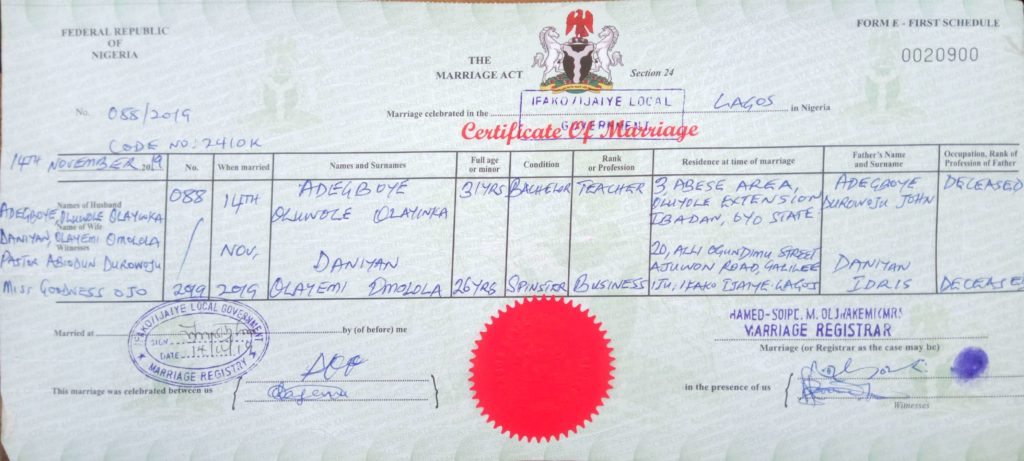 FEDERAL REPUBLIC
OF
NIGERIA
FORM E - FIRST SCHEDULE
0020900
THE
MARRIAGE ACT
Section 24
No. 088/2019
Marriage celebrated in the IFAKO/IJAIYE LOCAL GOVERNMENT LAGOS in Nigeria
Certificate Of Marriage
CODE NO: 2410K
14TH NOVEMBER, 2019
No.
When married
Names and Surnames
Full age or minor
Condition
Rank or Profession
Residence at time of marriage
Father's Name and Surname
Occupation, Rank of Profession of Father
Names of Husband
ADEGBOYE, OLUWOLE OLAYINKA
Name of Wife
DANIYAN, OLAYEMI OMOLOLA
Witnesses
PASTOR ABIODUN DUROWOJU
MISS GOODNESS OJO
088
/
299
14TH
NOV,
2019
ADEGBOYE
OLUWOLE OLAYINKA
DANIYAN
OLAYEMI OMOLOLA
31YRS
26YRS
BACHELOR
SPINSTER
TEACHER
BUSINESS
3 ABESE AREA,
OLUYOLE EXTENSION
IBADAN, OYO STATE.
20, ALLI OGUNDIMU STREET
AJUWON ROAD, GALILEE
IJU, IFAKO IJAIYE. LAGOS
ADEGBOYE
DUROWOJU JOHN
DANIYAN
IDRIS
DECEASED
DECEASED
IFAKO/IJAIYE LOCAL GOVERNMENT
SIGN
DATE 14
MARRIAGE REGISTRY
Married at
by (of before) me
MARRIAGE REGISTRAR
Marriage (or Registrar as the case may be)
This marriage was celebrated between us
in the presence of us
Witnesses